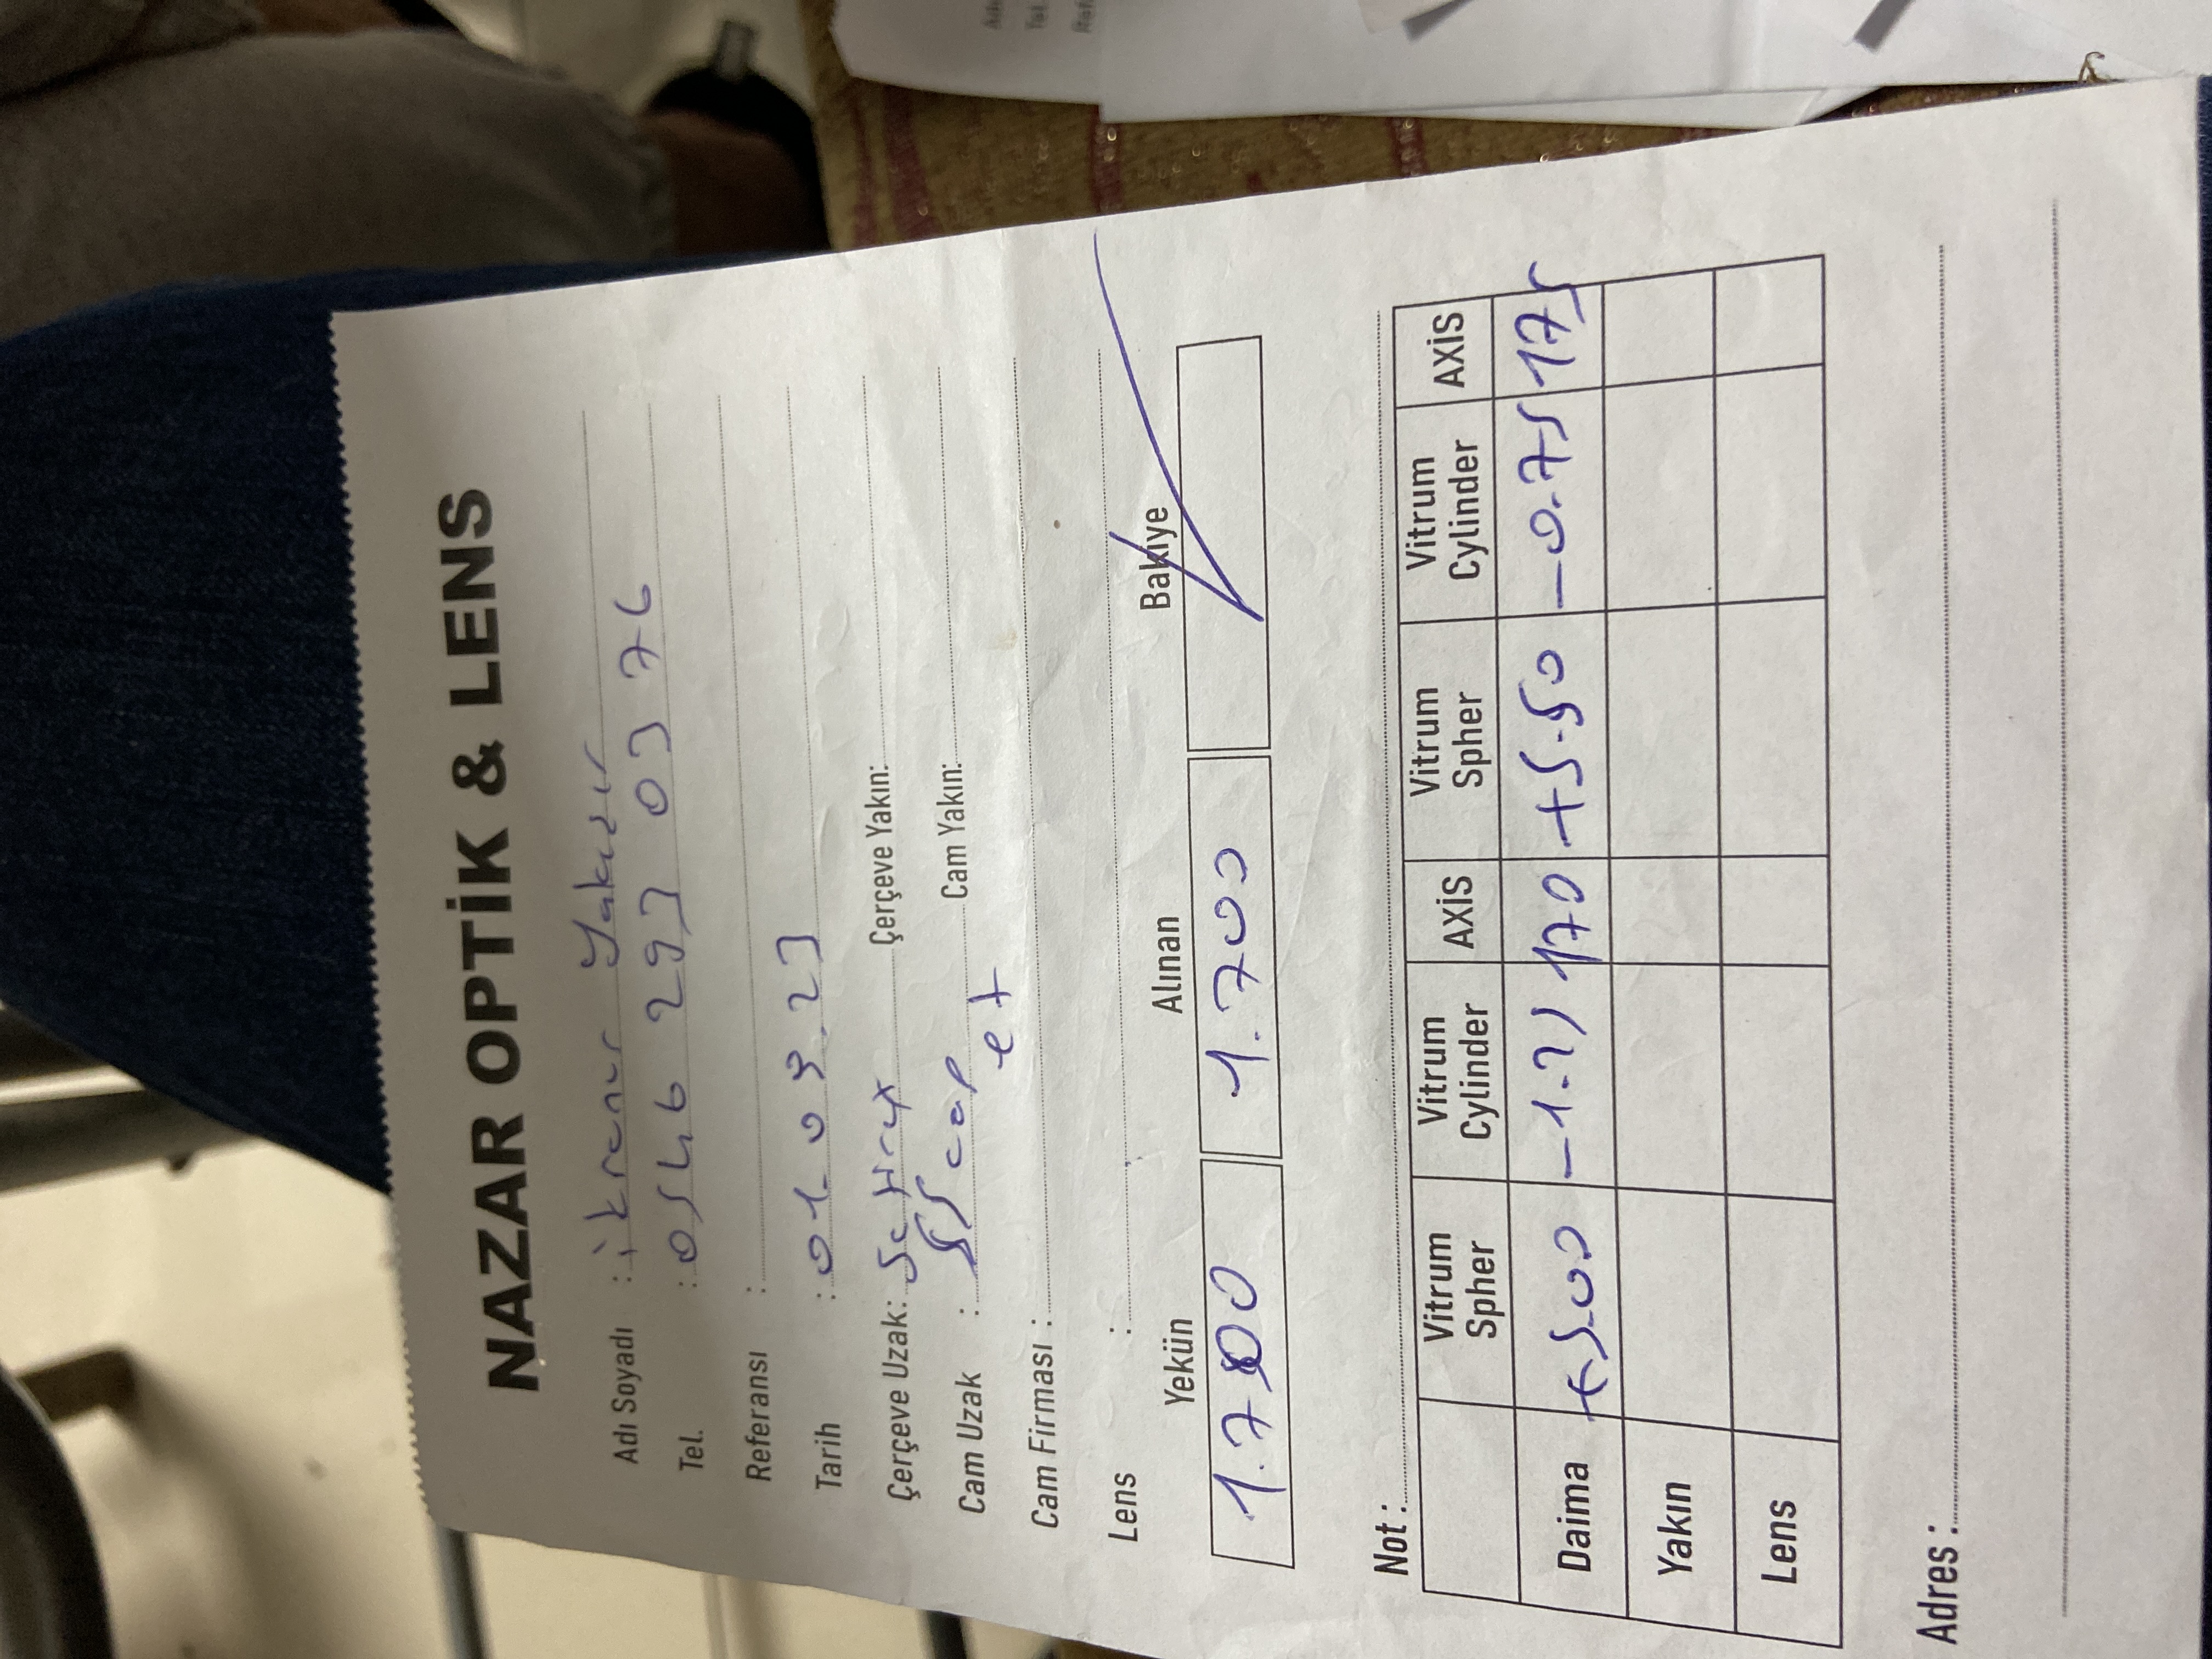 NAZAR OPTİK & LENS
Adı Soyadı : ikranur Yakışır
Tel. : 0546 293 03 76
Referansı :
Tarih : 01.09.23
Çerçeve Uzak: Çerçeve Yakın:
Cam Uzak : cap Cam Yakın:
et
Cam Firması :
Lens :
Yekün Alınan Bakiye
1.700 1.700
Not :
Vitrum Spher Vitrum Cylinder AXİS Vitrum Spher Vitrum Cylinder AXİS
Daima +5.00 -1.25 170 +5.50 -0.75 175
Yakın
Lens
Adres :